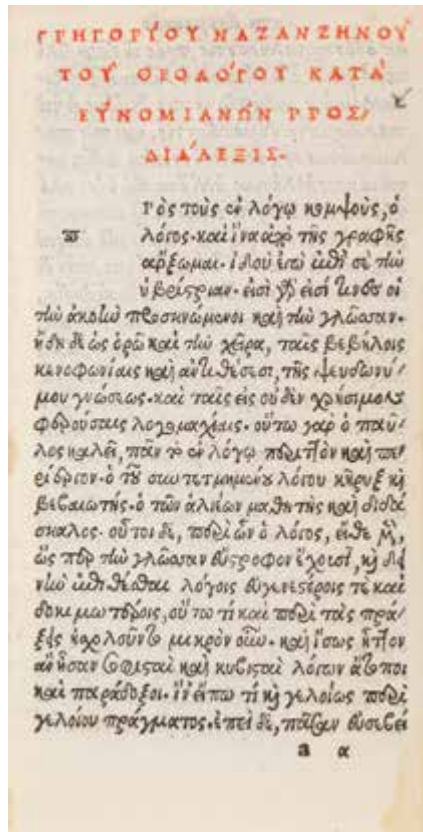 ΓΡΗΓΟΡΊΟΥ ΝΑΖΑΝΖΗΝΟΥ͂
ΤΟΥ͂ ΘΕΟΛΌΓΟΥ ΚΑΤᾺ
ΕΥ̓ΝΟΜΙΑΝΩ͂Ν ΠΡΟΣ/
ΔΙΆΛΕΞΙΣ.
π ρὸς τοὺς ἐν λόγῳ κομψοὺς, ὁ
λόγος. καὶ ἵνα ἀπὸ τῆς γραφῆς
ἄρξωμαι. ἰδοὺ ἐγὼ ἐπὶ σὲ τὴν
ὑβρίστριαν. εἰσὶ γὰρ εἰσί τινες οἱ
τὴν ἀκοὴν προσκνώμενοι καὶ τὴν γλῶσσαν.
ἤδη δὲ ὡς ὁρῶ καὶ τὴν χεῖρα, ταῖς βεβήλοις
κενοφωνίαις καὶ ἀντιθέσεσι, τῆς ψευδωνύ/
μου γνώσεως. καὶ ταῖς εἰς οὐδὲν χρήσιμον
φερούσαις λογομαχίαις. οὕτω γὰρ ὁ παῦ/
λος καλεῖ, πᾶν τὸ ἐν λόγῳ περιττὸν καὶ πε/
ρίεργον. ὁ τοῦ συντετμημένου λόγου κῆρυξ καὶ
βεβαιωτής. ὁ τῶν ἁλιέων μαθητὴς καὶ διδά/
σκαλος. οὗτοι δὲ, περὶ ὧν ὁ λόγος, εἴθε μὲν,
ὥσπερ τὴν γλῶσσαν εὔστροφον ἔχουσι, καὶ δει/
νὴν ἐπιθέσθαι λόγοις εὐγενεστέροις τε καὶ
δοκιμωτέροις, οὕτω τι καὶ περὶ τὰς πρά/
ξεις ἠσχολοῦντο μικρὸν γοῦν. καὶ ἴσως ἧττον
ἂν ἦσαν σοφισταὶ καὶ κυβισταὶ λόγων ἄτοποι
καὶ παράδοξοι. ἵν' εἴπω τι καὶ γελοίως περὶ
γελοίου πράγματος. ἐπεὶ δὲ, πᾶσαν εὐσεβεί
a α